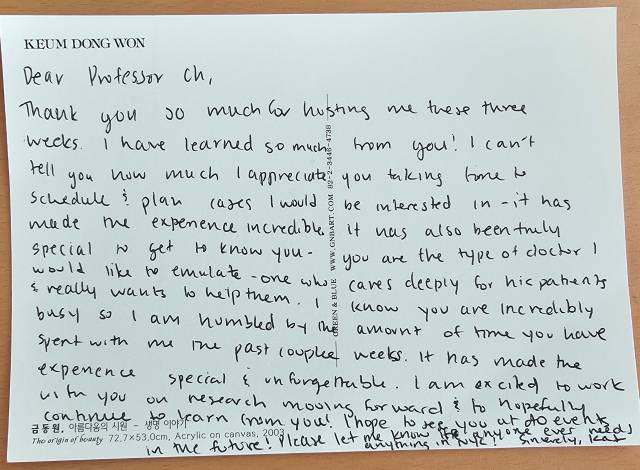 KEUM DONG WON
Dear Professor Ch,
Thank you so much for hosting me these three
weeks. I have learned so much from you! I can't
tell you how much I appreciate you taking time to
schedule & plan cases I would be interested in - it has
made the experience incredible. It has also been truly
special to get to know you - you are the type of doctor I
would like to emulate - one who cares deeply for his patients
& really wants to help them. I know you are incredibly
busy so I am humbled by the amount of time you have
spent with me the past couple weeks. It has made the
experience special & unforgettable. I am excited to work
with you on research moving forward & to hopefully
continue to learn from you! I hope to see you at events
in the future! Please let me know if anyone ever needs
anything in Sincerely, Kat
GREEN & BLUE WWW.GNBART.COM 82-2-3446-4738
금동원, 아름다움의 시원 – 생명 이야기
The origin of beauty 72.7×53.0cm, Acrylic on canvas, 2003